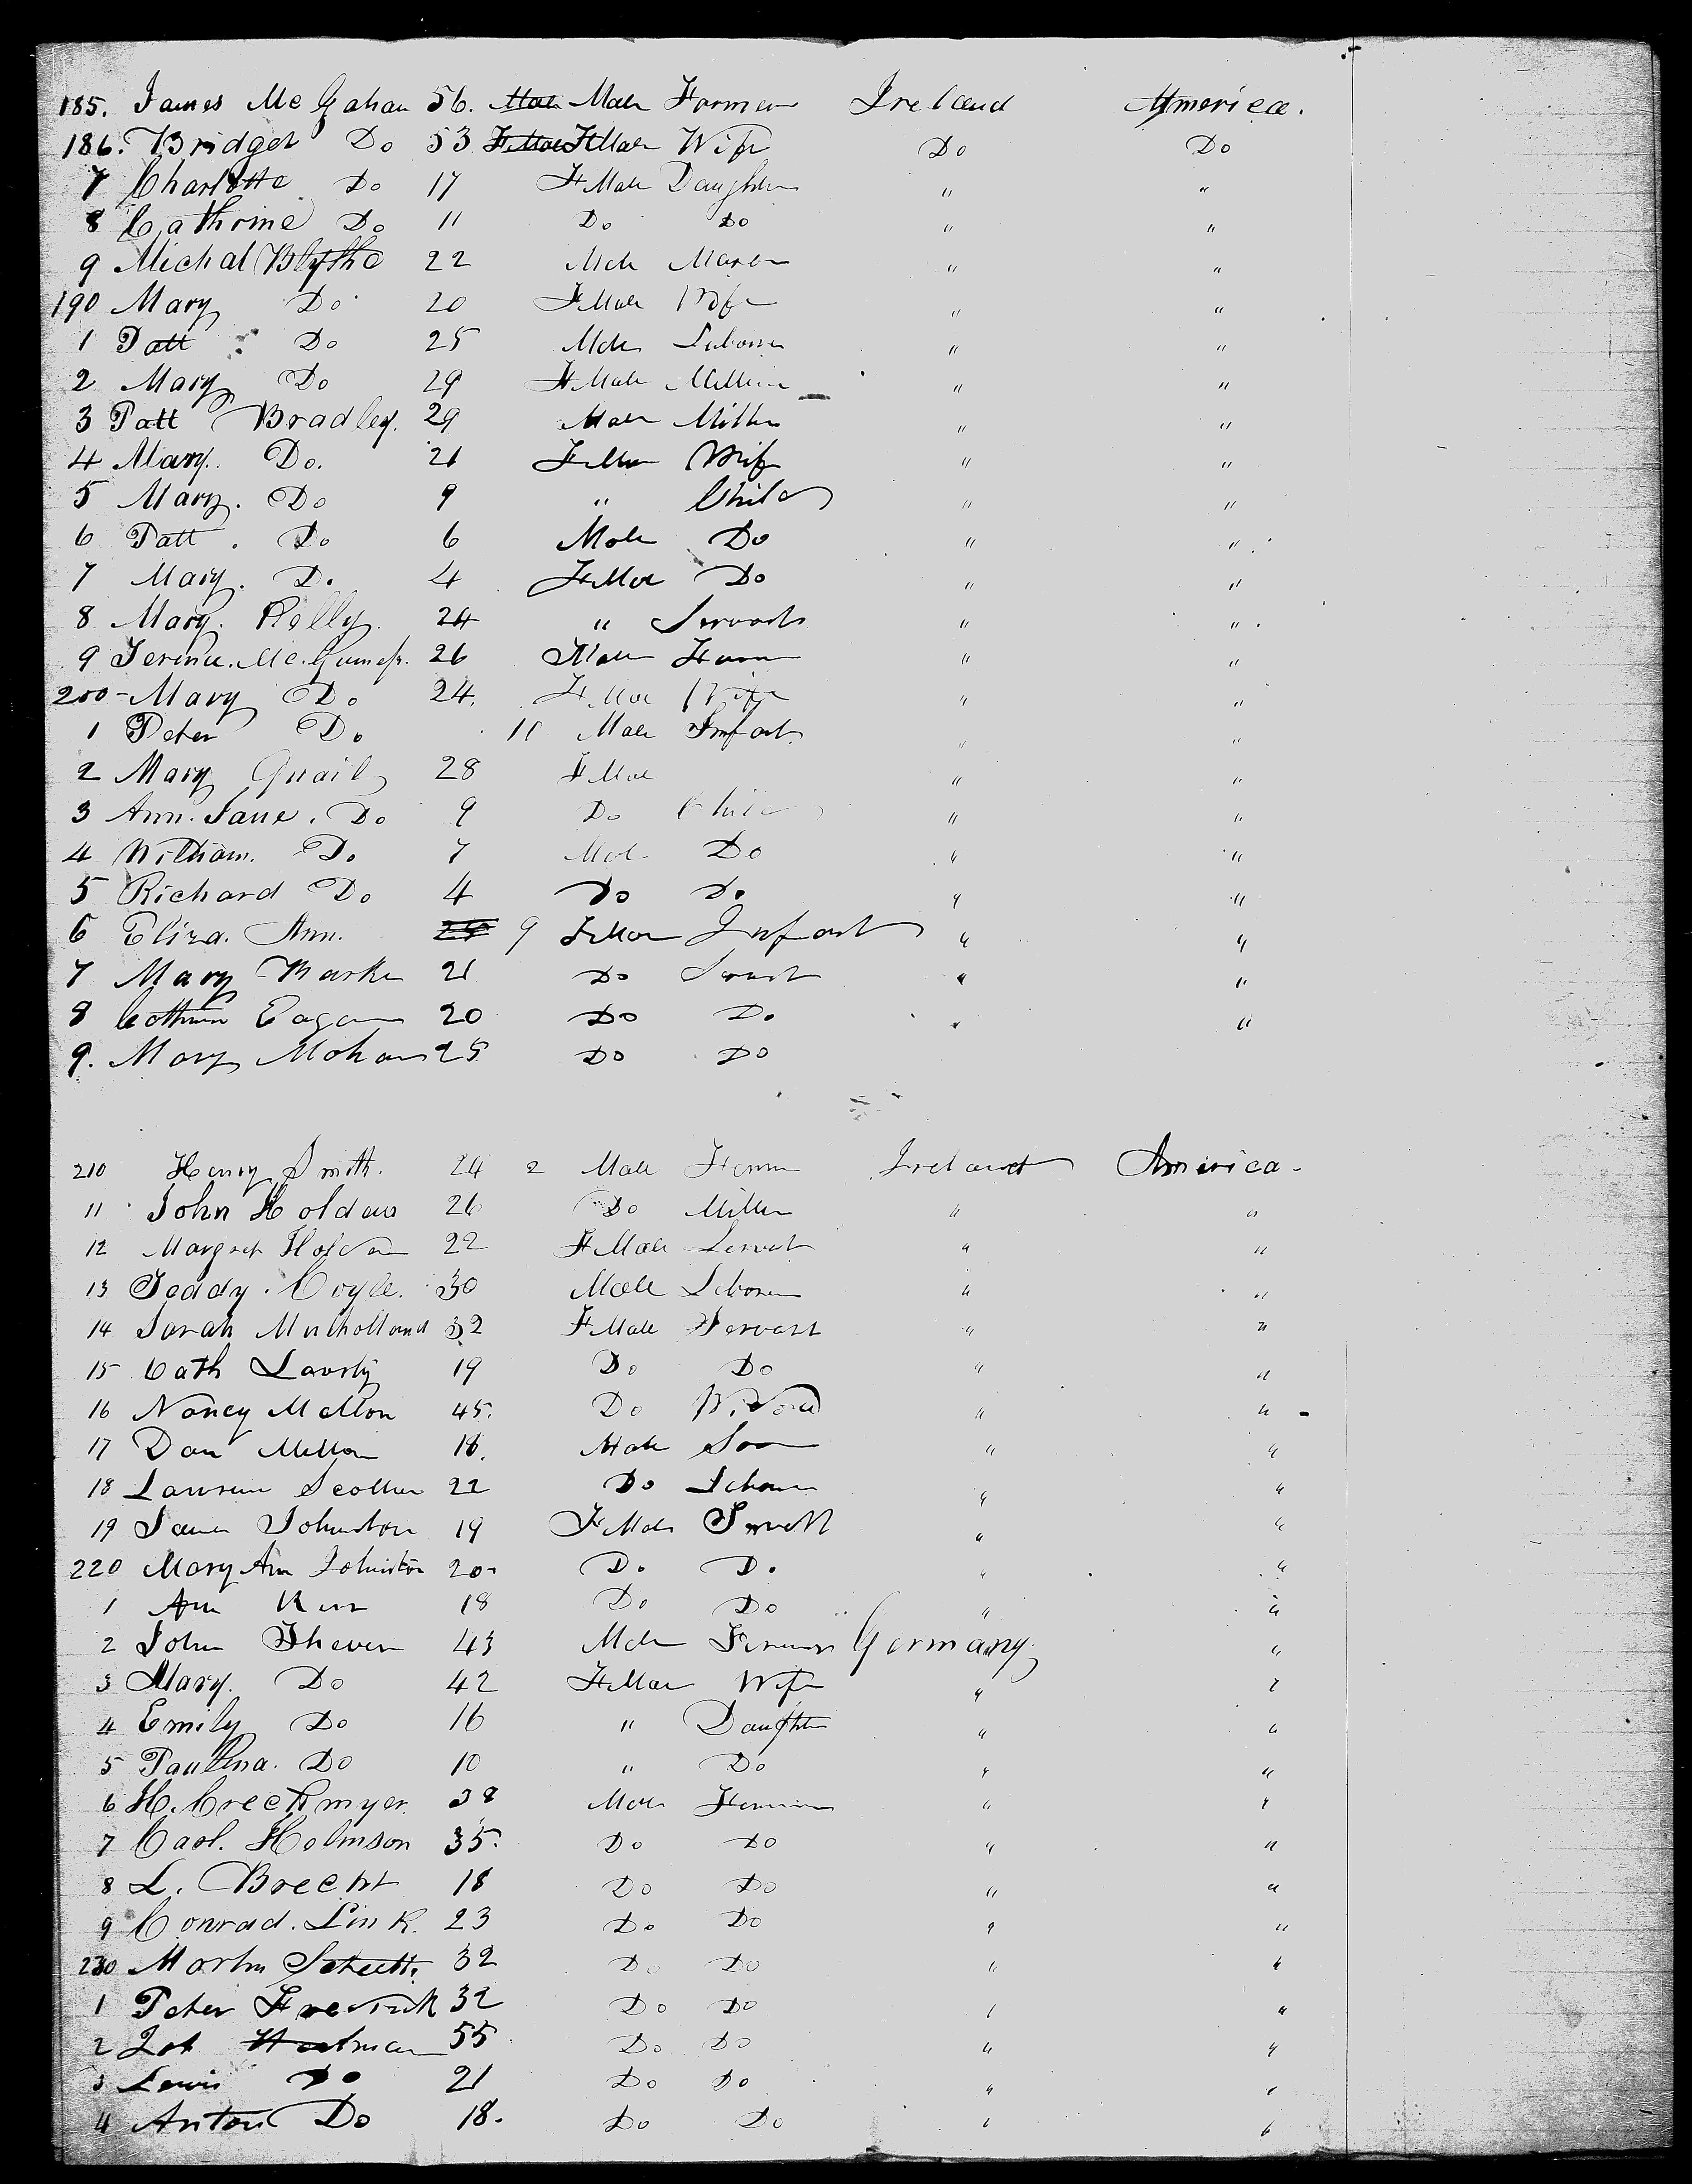 185. James McGahan 56. Male Farmer Ireland America.
186. Bridget Do 53 FMale Wife Do Do
7 Charlotte Do 17 FMale Daughter " "
8 Cathrine Do 11 Do Do " "
9 Michal Blythe 22 Male " "
190 Mary Do 20 FMale Wife " "
1 Patt Do 25 Male Laborer " "
2 Mary Do 29 FMale " "
3 Patt Bradley. 29 Male Miller " "
4 Mary. Do. 21 FMale Wife " "
5 Mary. Do 9 " Child " "
6 Patt. Do 6 Male Do " "
7 Mary. Do 4 FMale Do " "
8 Mary. Kelly. 24 " Servant " "
9 26 Male Farmer " "
200 - Mary Do 24. FMale Wife " "
1 Peter Do Male Infant. " "
2 Mary Quail 28 FMale " "
3 Ann. Jane. Do 9 Do Child " "
4 William. Do 7 Male Do " "
5 Richard Do 4 Do Do " "
6 Eliza. Ann. 9 FMale Infant " "
7 Mary 21 Do Servant " "
8 Cathrine Eagan 20 Do Do " "
9. Mary Mohan 25 Do Do
210 Henry Smith. 24 2 Male Farmer Ireland America -
11 John Holden 26 Do Miller " "
12 Margret Holden 22 FMale Servant " "
13 Teddy. Coyle. 30 Male Laborer " "
14 Sarah Mulholland 32 FMale Servant " "
15 Cath 19 Do Do " "
16 Nancy Mellon 45. Do Widow " "
17 Dan Mellon 18. Male Son " "
18 22 Do Laborer " "
19 Johnston 19 FMale Servant " "
220 Mary Ann Johnston 20 Do Do " "
1 Ann Kerr 18 Do Do " "
2 John Theven 43 Male Farmer Germany "
3 Mary. Do 42 FMale Wife " "
4 Emily Do 16 " Daughter " "
5 Paulina. Do 10 " Do " "
6 H. Male Farmer " "
7 Carl. Holmson 35. Do Do " "
8 L. Brecht 18 Do Do " "
9 Conrad. Link. 23 Do Do " "
230 Martin 32 Do Do " "
1 Peter Fredrick 32 Do Do " "
2 55 Do Do " "
3 Lewis Do 21 Do Do " "
4 Anton Do 18. Do Do " "